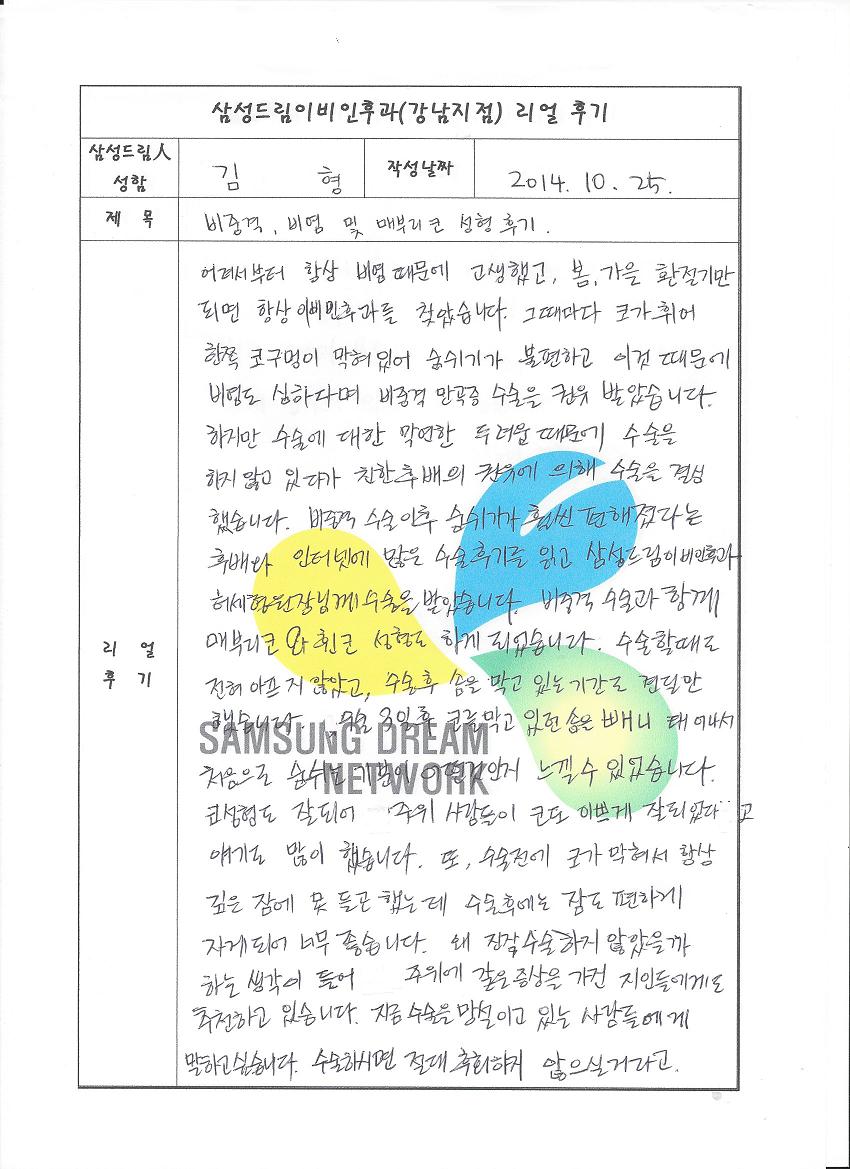 삼성드림이비인후과(강남지점) 리얼 후기
삼성드림人 성함 김 형 작성날짜 2014. 10. 25.
제 목 비중격, 비염 및 매부리코 성형 후기.
리 얼 후 기
어려서부터 항상 비염때문에 고생했고, 봄,가을 환절기만
되면 항상 이비인후과를 찾았습니다. 그때마다 코가 휘어
한쪽 콧구멍이 막혀있어 숨쉬기가 불편하고 이것 때문에
비염도 심하다며 비중격 만곡증 수술을 권유 받았습니다.
하지만 수술에 대한 막연한 두려움 때문에 수술을
하지 않고 있다가 친한후배의 권유에 의해 수술을 결심
했습니다. 비중격 수술이후 숨쉬기가 훨씬 편해졌다는
후배와 인터넷에 많은 수술후기를 읽고 삼성드림이비인후과
허세형원장님께 수술을 받았습니다. 비중격 수술과 함께
매부리코와 휜코 성형도 하게 되었습니다. 수술할때도
전혀 아프지 않았고, 수술후 솜을 막고 있는 기간도 견딜만
했습니다. 수술 3일후 코를 막고 있던 솜을 빼니 태어나서
SAMSUNG DREAM
NETWORK
처음으로 숨쉬는 기분이 어떤것인지 느낄수 있었습니다.
코성형도 잘되어 주위 사람들이 코도 이쁘게 잘되었다"고
얘기도 많이 했습니다. 또, 수술전에 코가 막혀서 항상
깊은 잠에 못 들곤 했는데 수술후에는 잠도 편하게
자게되어 너무 좋습니다. 왜 진작 수술하지 않았을까
하는 생각이 들어 주위에 같은증상을 가진 지인들에게도
추천하고 있습니다. 지금 수술을 망설이고 있는 사람들에게
말하고싶습니다. 수술하시면 절대 후회하지 않으실거라고.